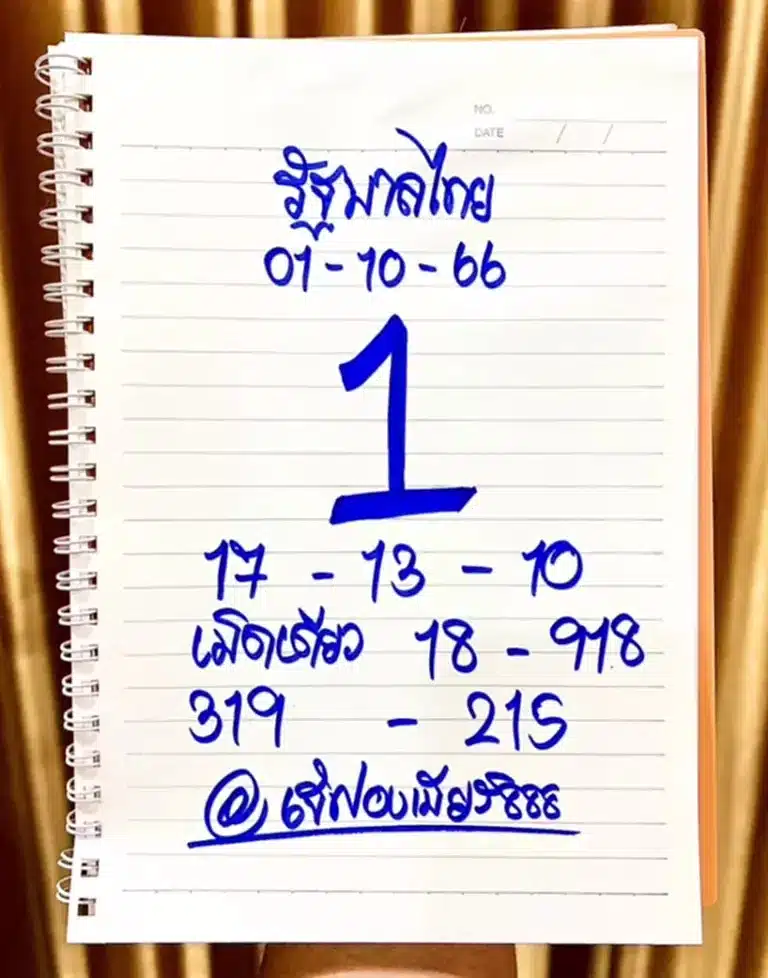 NO.
DATE / /
รัฐบาลไทย
01-10-66
1
17 - 13 - 10
เม็ดเดียว 18 - 918
319 - 215
@